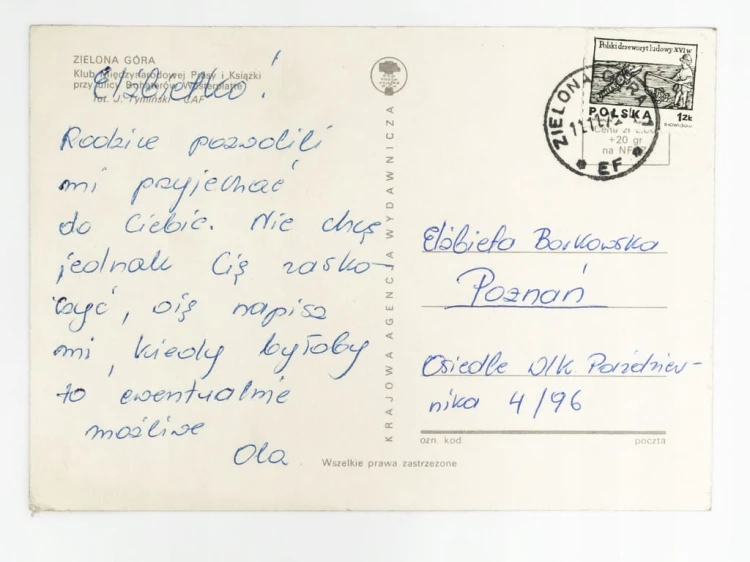 ZIELONA GÓRA
Klub Międzynarodowej Prasy i Książki
przy ulicy Bohaterów Westerplatte
fot. J. Tymiński - CAF
Elżbietko!
Rodzice pozwolili
mi przyjechać
do Ciebie. Nie chcę
jednak Cię zasko-
czyć, więc napisz
mi, kiedy byłoby
to ewentualnie
możliwe
Ola
KRAJOWA AGENCJA WYDAWNICZA
Wszelkie prawa zastrzeżone
Polski drzeworyt ludowy XVI w
POLSKA
1 zł
ZIELONA GÓRA 1
EF
+20 gr
na NF
Elżbieta Borkowska
Poznań
Osiedle Wlk. Paździer-
nika 4/96
ozn. kod
poczta